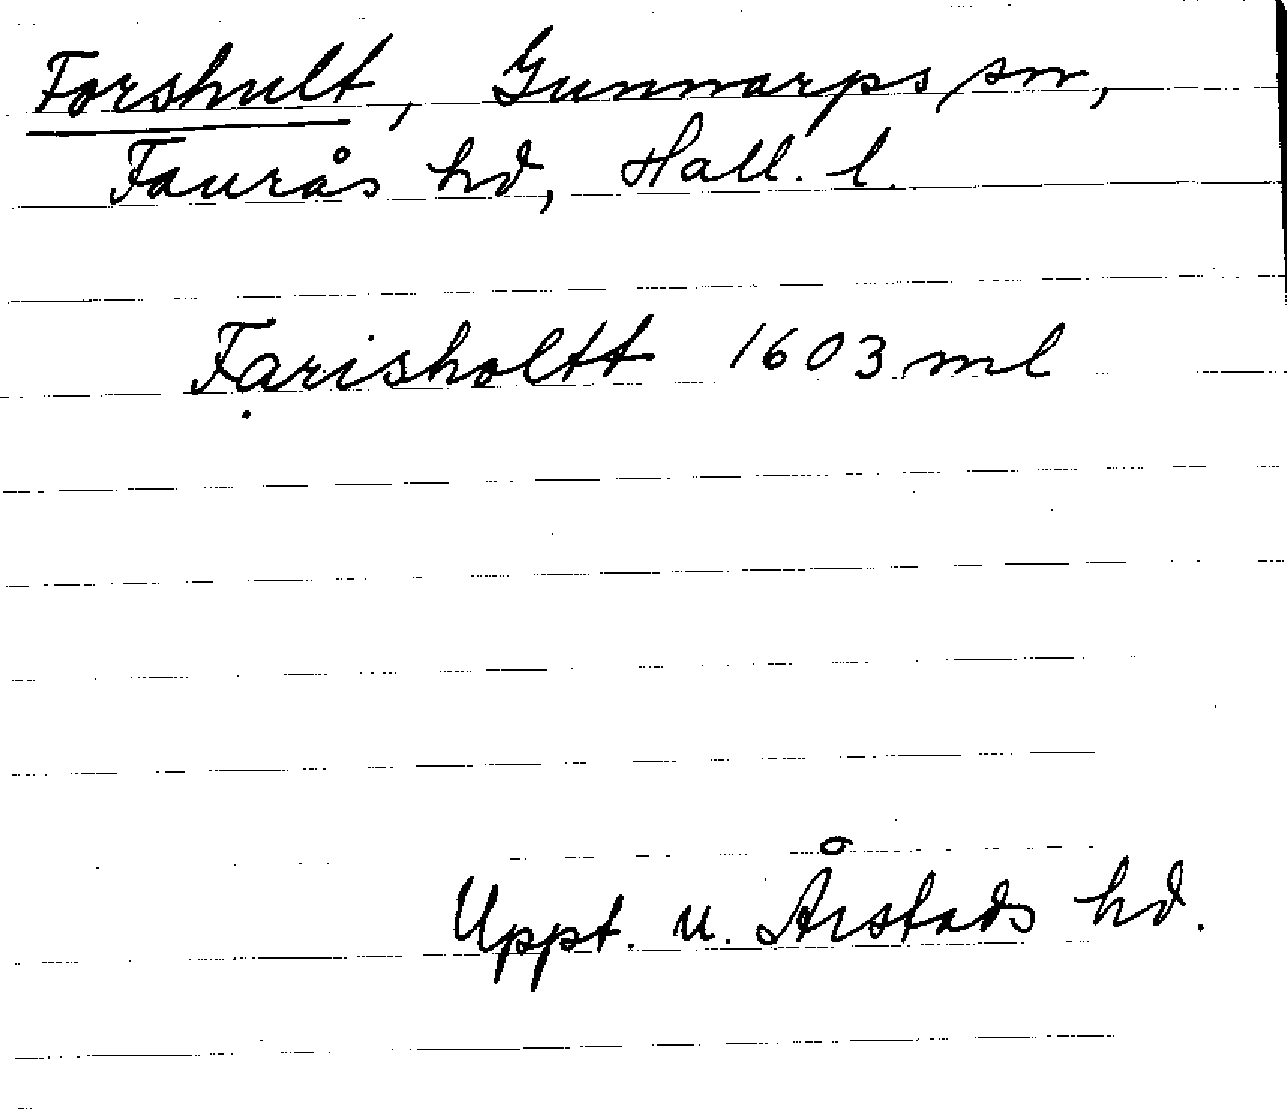 Forshult, Gunnarps sn,
Faurås hd, Hall. l.
Farisholtt 1603 ml
Uppt. u. Årstads hd.